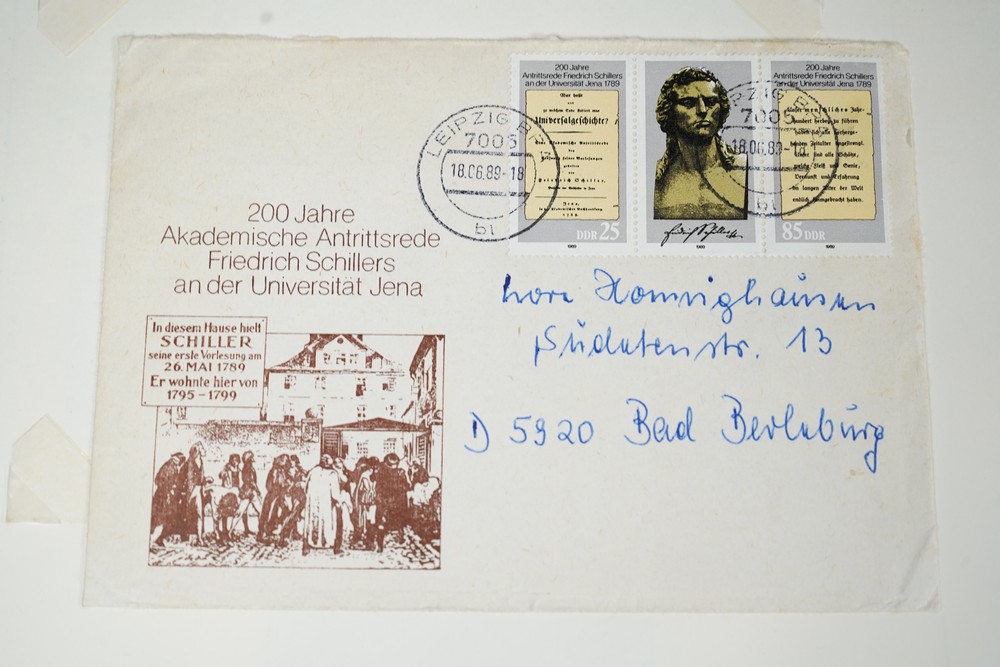 200 Jahre
Antrittsrede Friedrich Schillers
an der Universität Jena 1789
Was heißt
und
zu welchem Ende studiert man
Universalgeschichte?
Eine Akademische Antrittsrede
bey
Eröffnung seiner Vorlesungen
gehalten
von
Friedrich Schiller,
Jena,
in der Akademischen Buchhandlung
1789.
DDR 25
1989
Friedrich Schiller
1989
200 Jahre
Antrittsrede Friedrich Schillers
an der Universität Jena 1789
Unser menschliches Jahr-
hundert herbey zu führen
haben sich alle vorherge-
henden Zeitalter angestrengt.
Unser sind alle Schätze,
welche Fleiß und Genie,
Vernunft und Erfahrung
im langen Alter der Welt
endlich heimgebracht haben.
85 DDR
1989
LEIPZIG BPF
7005
18.06.89-18
bl
LEIPZIG BPF
7005
18.06.89-18
bl
200 Jahre
Akademische Antrittsrede
Friedrich Schillers
an der Universität Jena
In diesem Hause hielt
SCHILLER
seine erste Vorlesung am
26. MAI 1789
Er wohnte hier von
1795 – 1799
Lore
Sudetenstr. 13
D 5920 Bad Berleburg